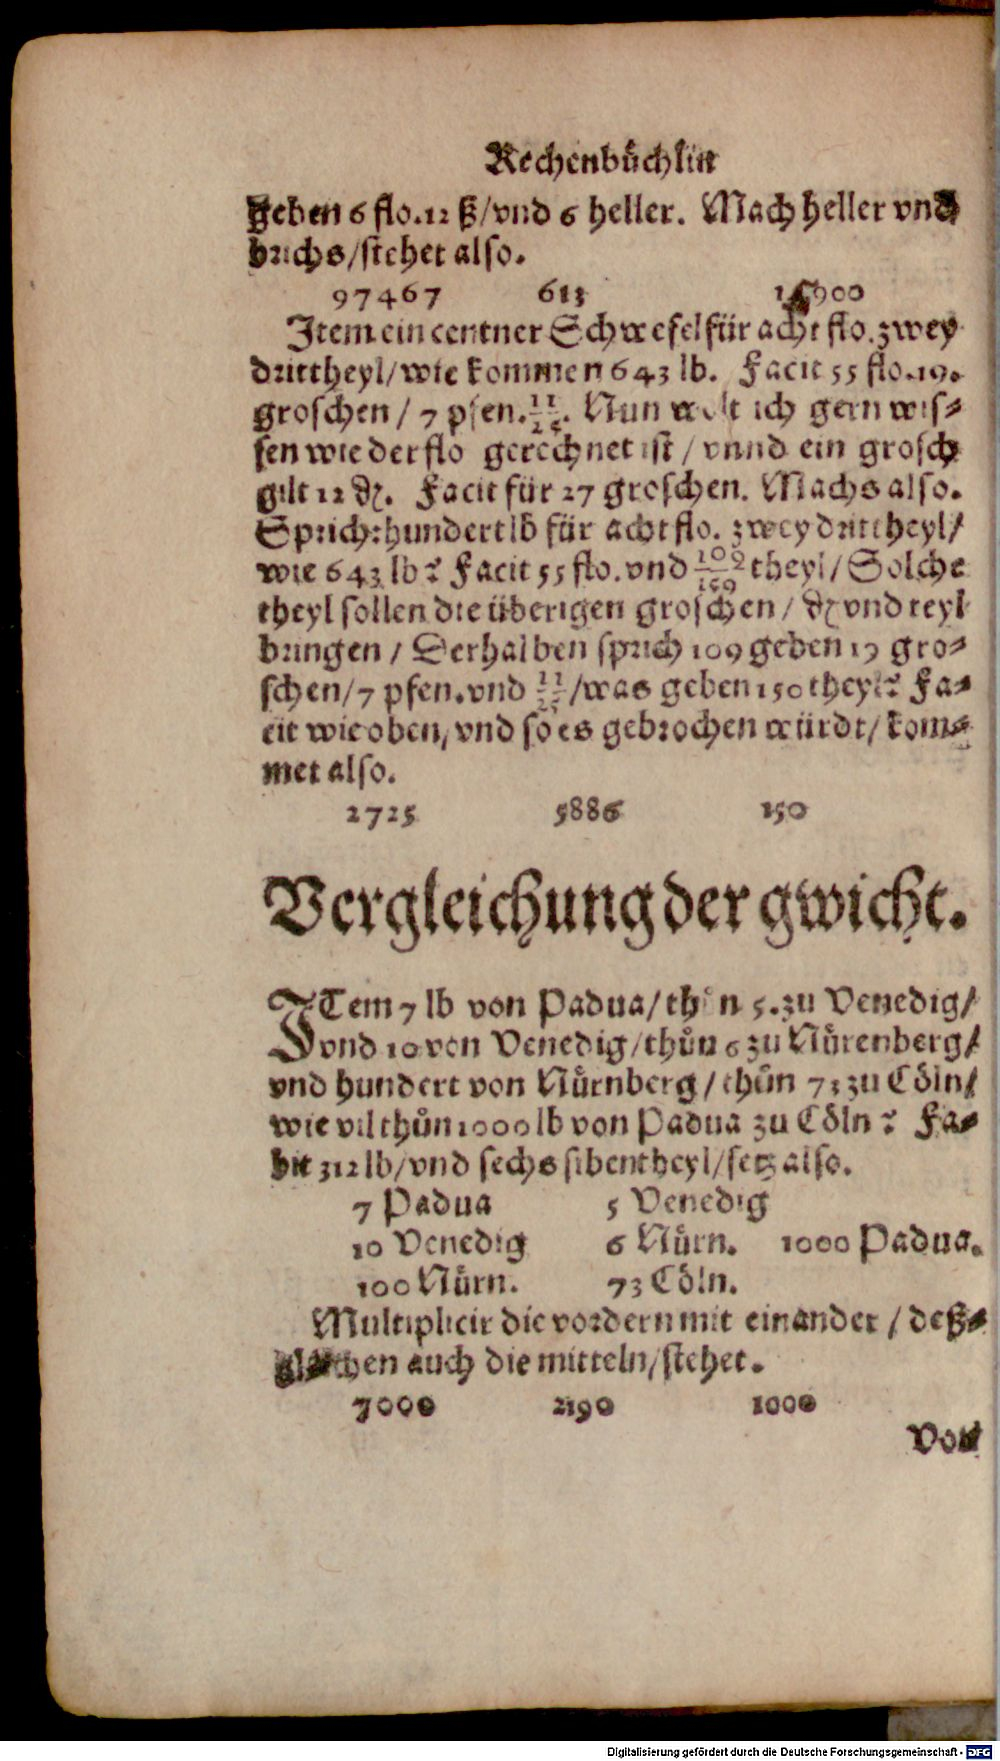 Rechenbüchlin
geben 6 flo. 12 ß/vnd 6 heller. Mach heller vnd
brichs/stehet also.
97467 613 900
Item ein centner Schwefel für acht flo. zwey
drittheyl/wie kommen 643 lb. Facit 55 flo. 19.
groschen / 7 pfen. 11/25. Nun wolt ich gern wis⸗
sen wie der flo gerechnet ist / vnnd ein grosch
gilt 12 ₰. Facit für 27 groschen. Machs also.
Sprich: hundert lb für acht flo. zwey drittheyl/
wie 643 lb? Facit 55 flo. vnd 109/150 theyl/Solche
theyl sollen die überigen groschen / ₰ vnd teyl
bringen / Derhalben sprich 109 geben 19 gro⸗
schen/7 pfen. vnd 11/25/was geben 150 theyl? Fa⸗
cit wie oben, vnd so es gebrochen würdt/kom⸗
met also.
2725 5886 150
Vergleichung der gwicht.
ITem 7 lb von Padua/thůn 5. zu Venedig/
vnd 10 von Venedig/thůn 6 zu Nůrenberg/
vnd hundert von Nůrnberg/thůn 73 zu Cöln/
wie vil thůn 1000 lb von Padua zu Cöln? Fa⸗
cit 312 lb/vnd sechs sibentheyl/setz also.
7 Padua 5 Venedig
10 Venedig 6 Nůrn. 1000 Padua.
100 Nůrn. 73 Cöln.
Multiplicir die vordern mit einander / deß⸗
gleichen auch die mitteln/stehet.
7000 2190 1000
Von
Digitalisierung gefördert durch die Deutsche Forschungsgemeinschaft - DFG